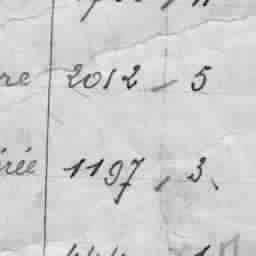 re 2012 - 5
irée 1197, 3